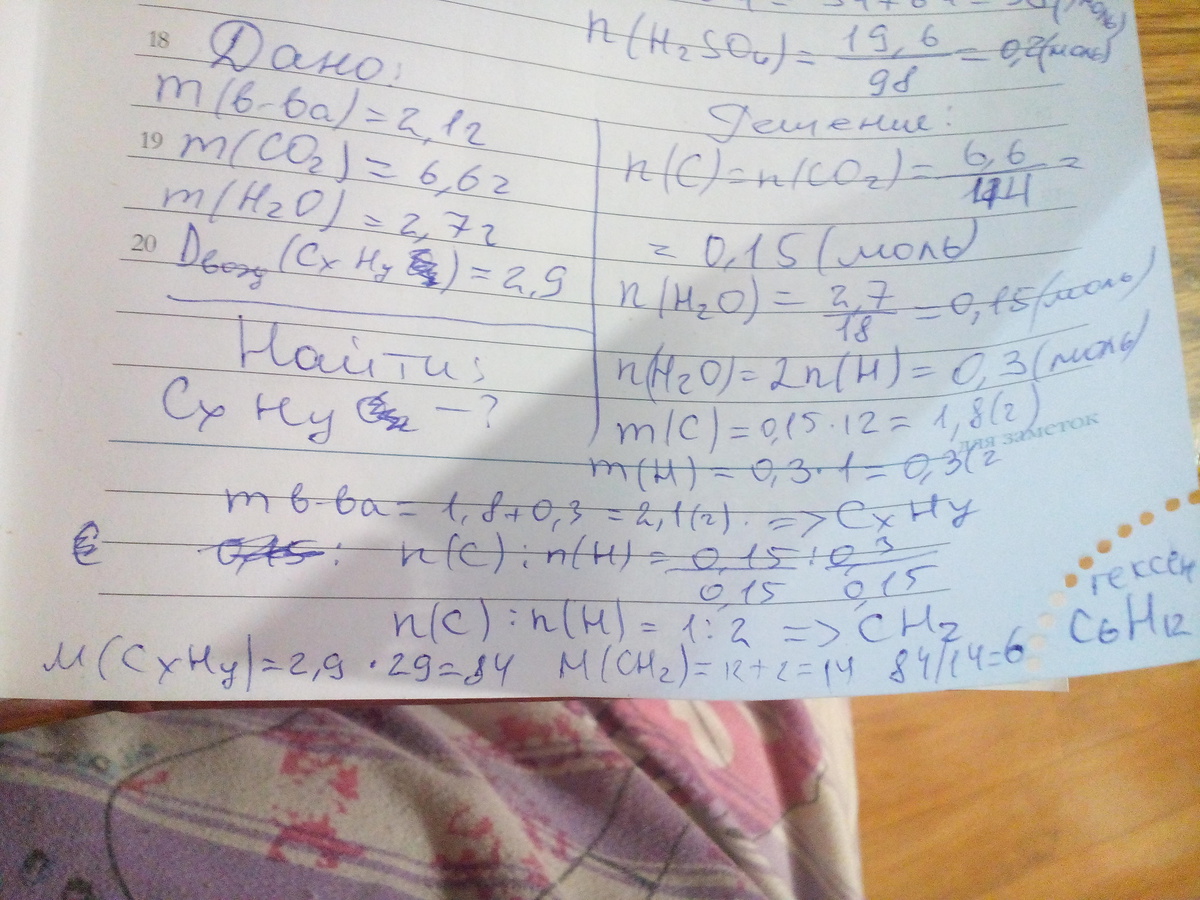 n(H₂SO₄) = 19,6/98 = 0,2(моль)
18 Дано:
m(в-ва) = 2,1г
19 m(CO₂) = 6,6г
m(H₂O) = 2,7г
20 Dвозд (CxHy) = 2,9
Найти:
CxHy — ?
Решение:
n(C) = n(CO₂) = 6,6/44 =
= 0,15 (моль)
n(H₂O) = 2,7/18 = 0,15(моль)
n(H₂O) = 2n(H) = 0,3(моль)
m(C) = 0,15 · 12 = 1,8(г)
для заметок
m(H) = 0,3 · 1 = 0,3(г
m в-ва = 1,8 + 0,3 = 2,1(г). => CxHy
: n(C) : n(H) = 0,15/0,15 : 0,3/0,15
n(C) : n(H) = 1 : 2 => CH₂
M(CxHy) = 2,9 · 29 = 84 M(CH₂) = 12 + 2 = 14 84/14 = 6
гексен
C₆H₁₂